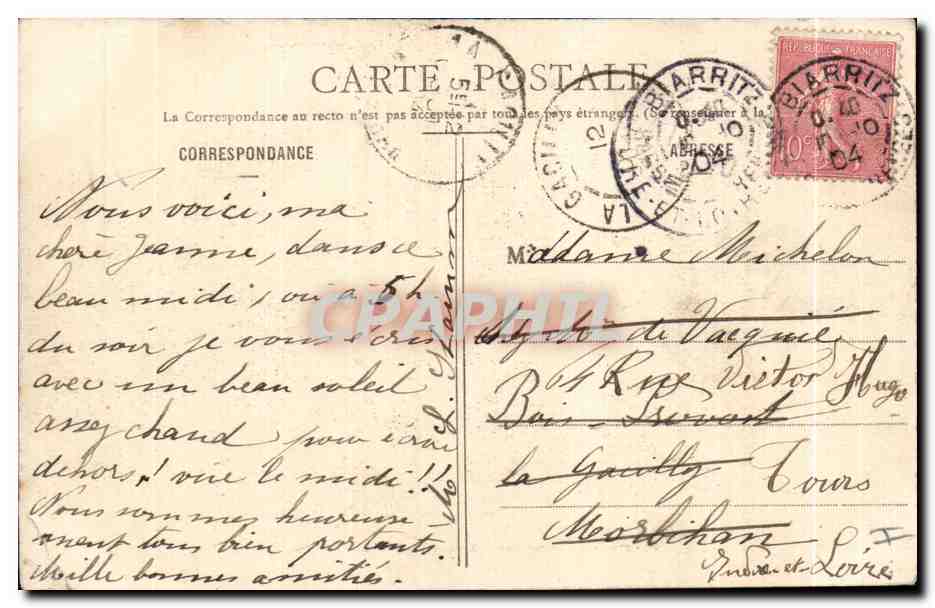 CARTE POSTALE
La Correspondance au recto n'est pas acceptée par tous les pays étrangers. (Se renseigner à la
CORRESPONDANCE
ADRESSE
RÉPUBLIQUE FRANÇAISE
10c
BIARRITZ
BIARRITZ
04
04
LA GACILLY
12
Nous voici, ma
chère Jeanne, dans ce
beau midi, ou a 5 h
du soir je vous écris
avec un beau soleil
assez chaud pour écrire
dehors! vive le midi!!
Nous sommes heureuse
ment tous bien portants.
Mille bonnes amitiés.
CPAPHIL
M
Madame Michelon
de Vacquié
64 Rue Victor Hugo
Bois
la Gacilly
Tours
Morbihan
Indre-et-Loire